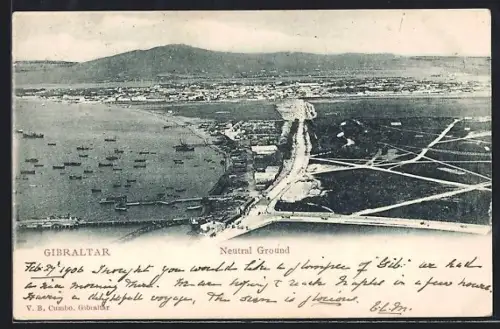 GIBRALTAR
Neutral Ground
Feb 27th 1906 I thought you would like a glimpse of "Gib". we had
a nice morning there. We are hoping to reach Naples in a few hours.
Having a delightful voyage, The sun is glorious.
V. B. Cumbo, Gibraltar